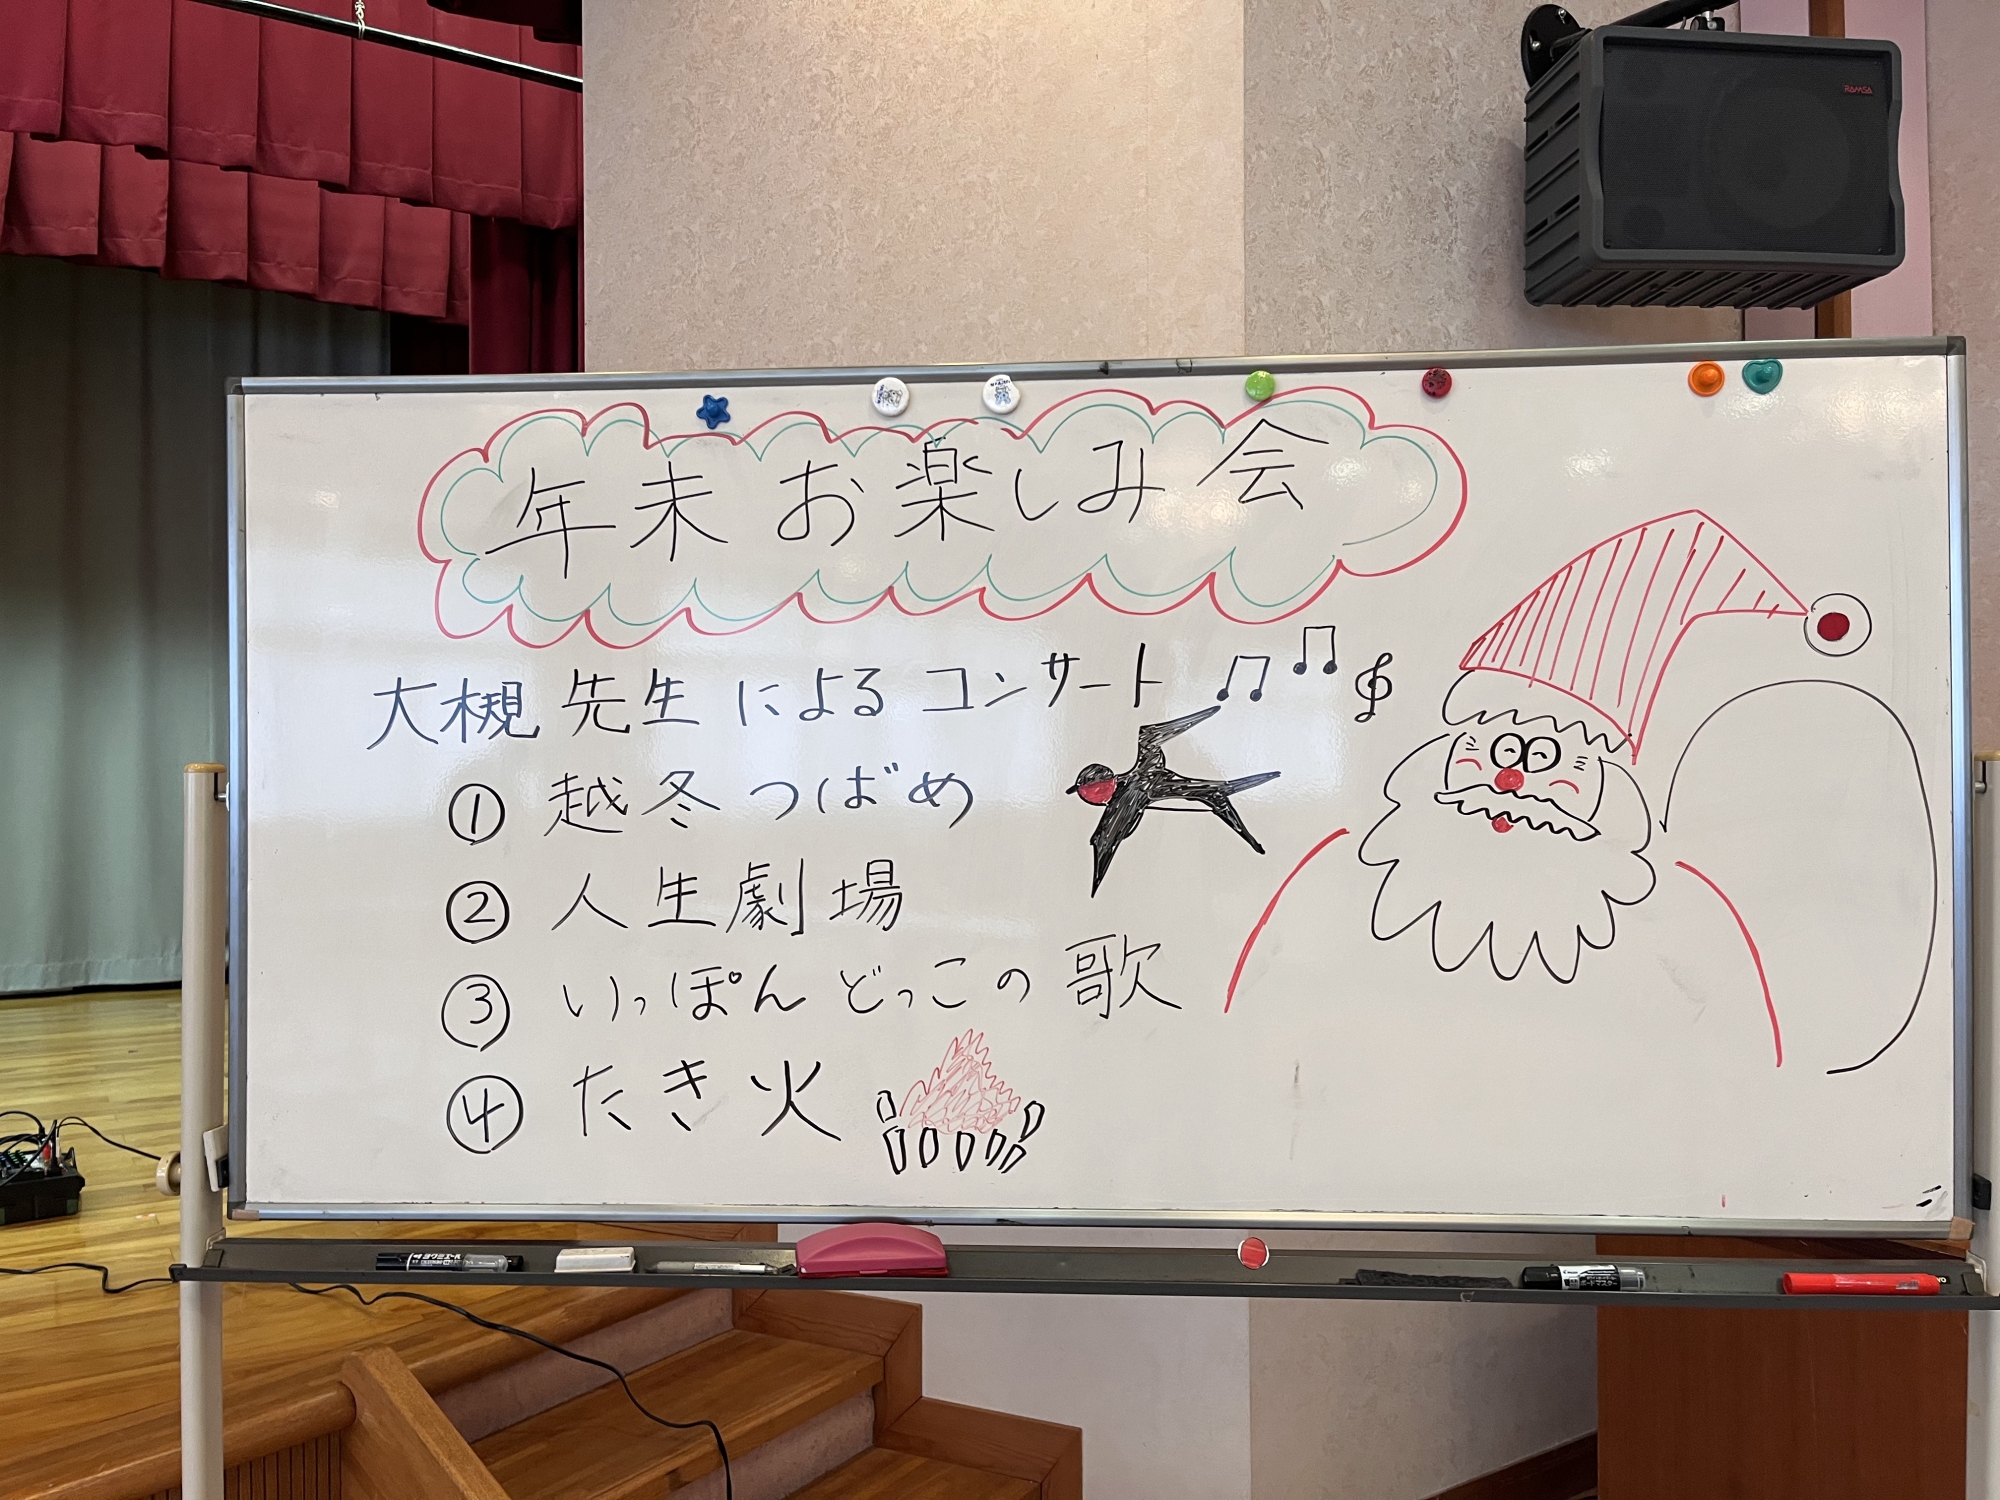 年末お楽しみ会
大槻先生によるコンサート
① 越冬つばめ
② 人生劇場
③ いっぽんどっこの歌
④ たき火
RAMSA